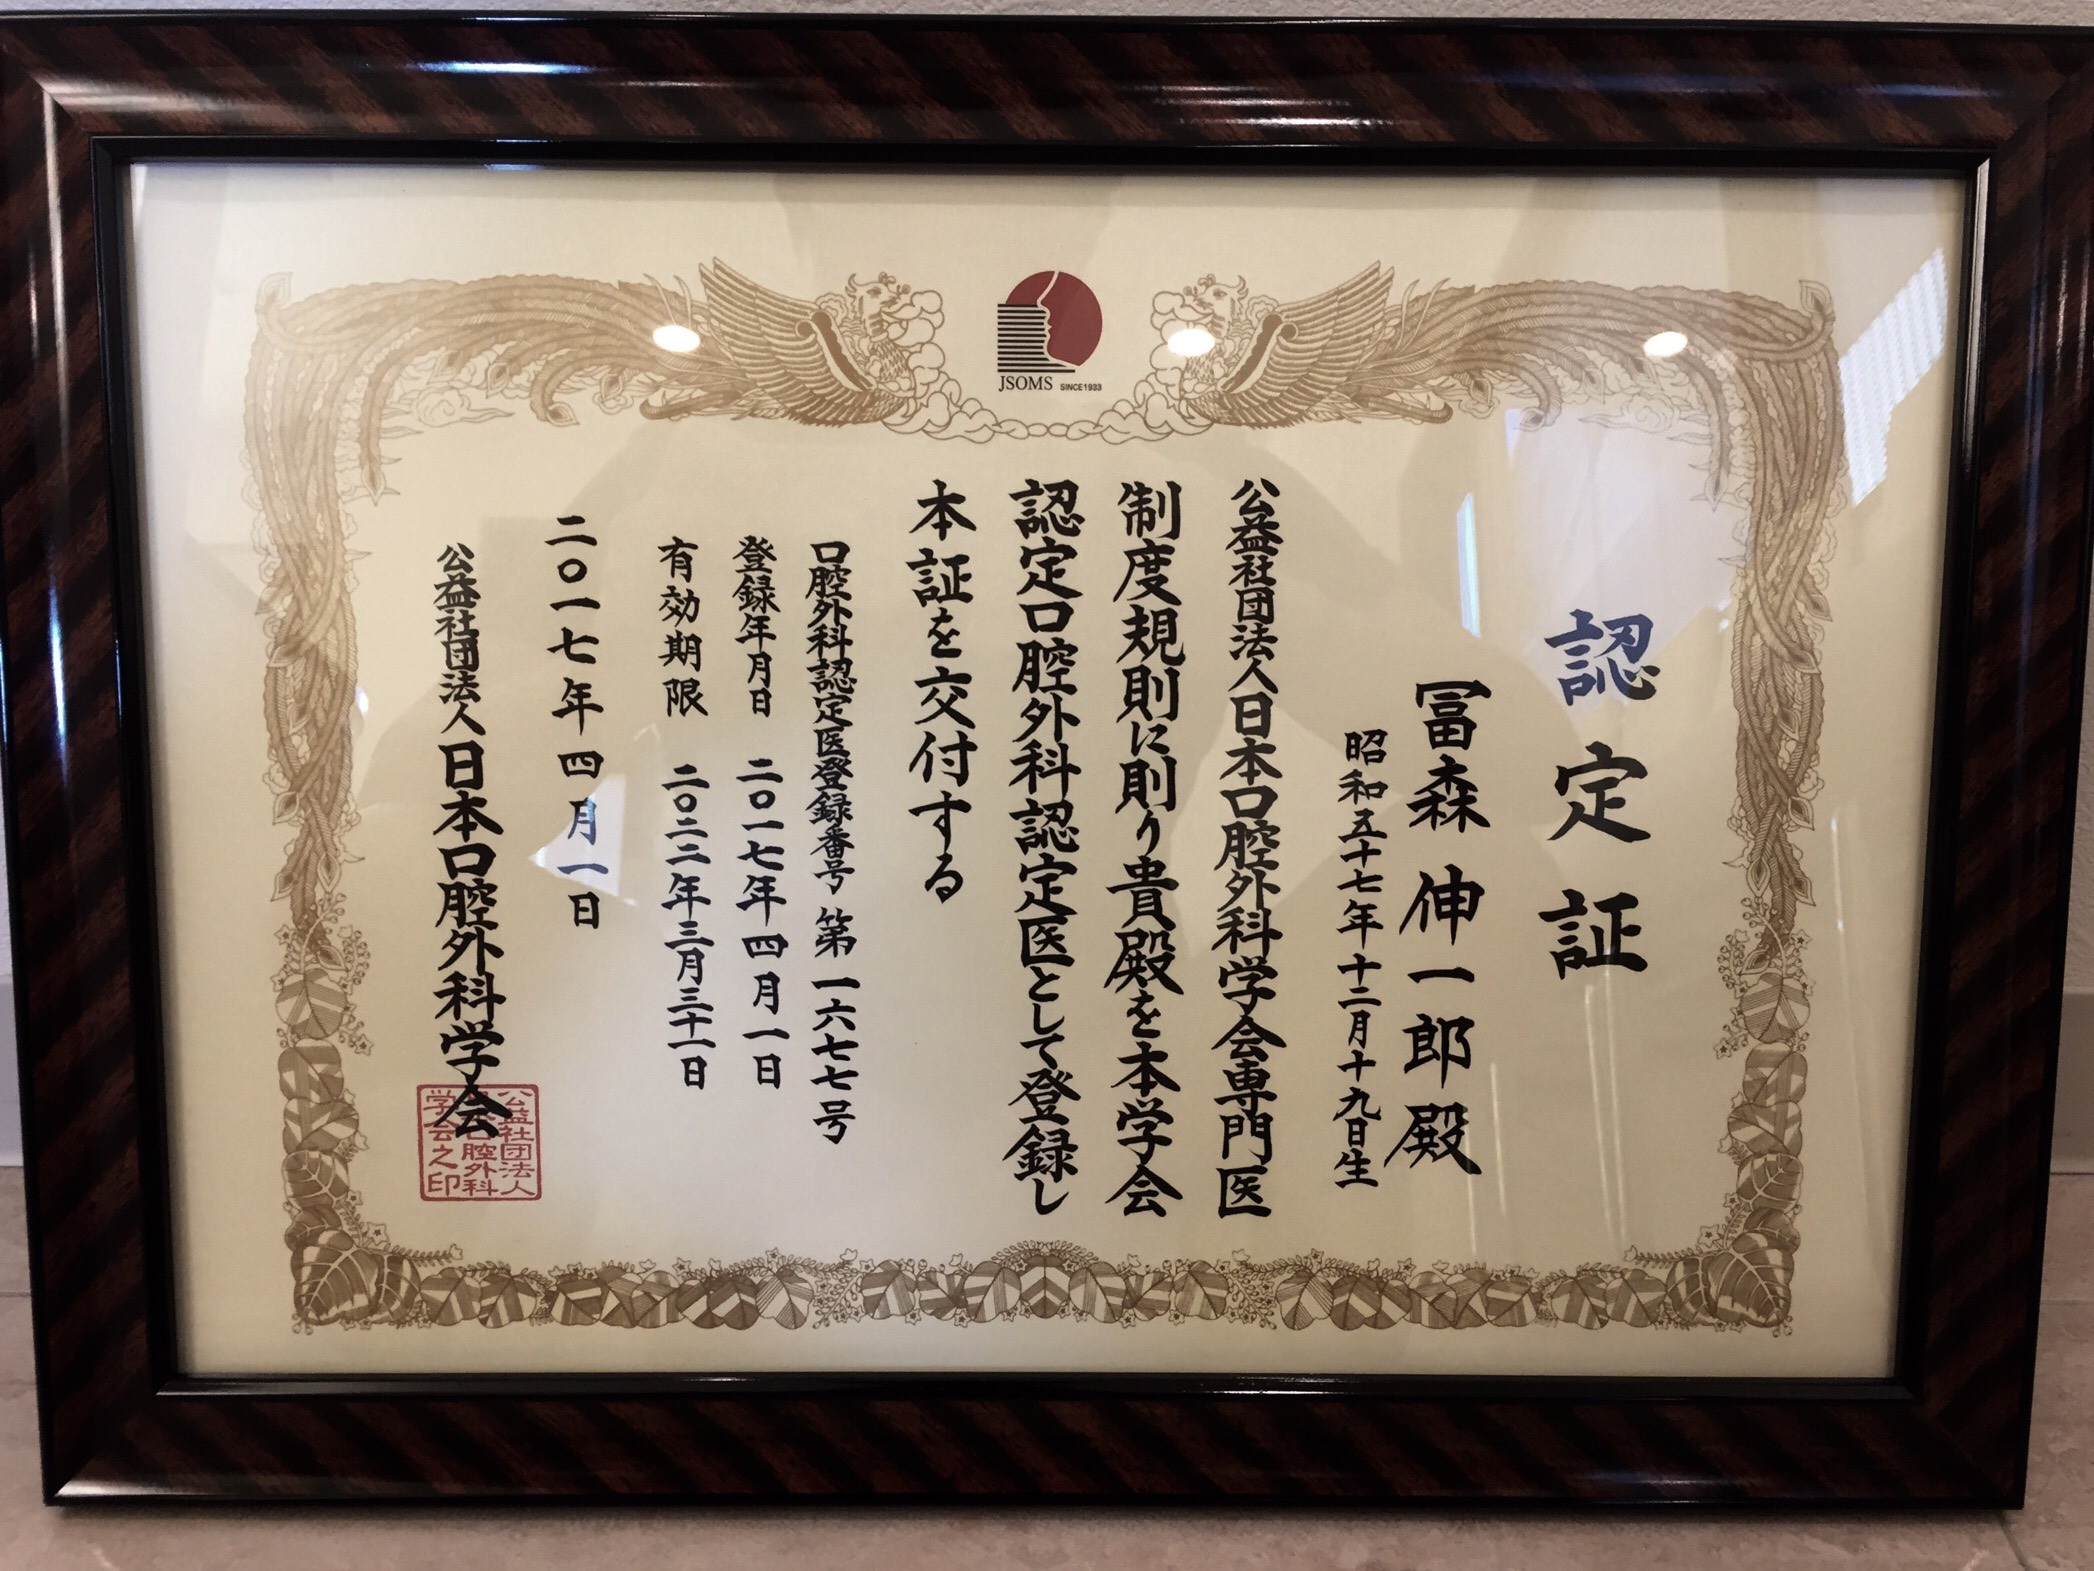 JSOMS SINCE1933
認定証
冨森伸一郎殿
昭和五十七年十二月十九日生
公益社団法人日本口腔外科学会専門医
制度規則に則り貴殿を本学会
認定口腔外科認定医として登録し
本証を交付する
口腔外科認定医登録番号 第一六七七号
登録年月日 二〇一七年四月一日
有効期限 二〇二二年三月三十一日
二〇一七年四月一日
公益社団法人日本口腔外科学会
公益社団法人
口腔外科
学会之印